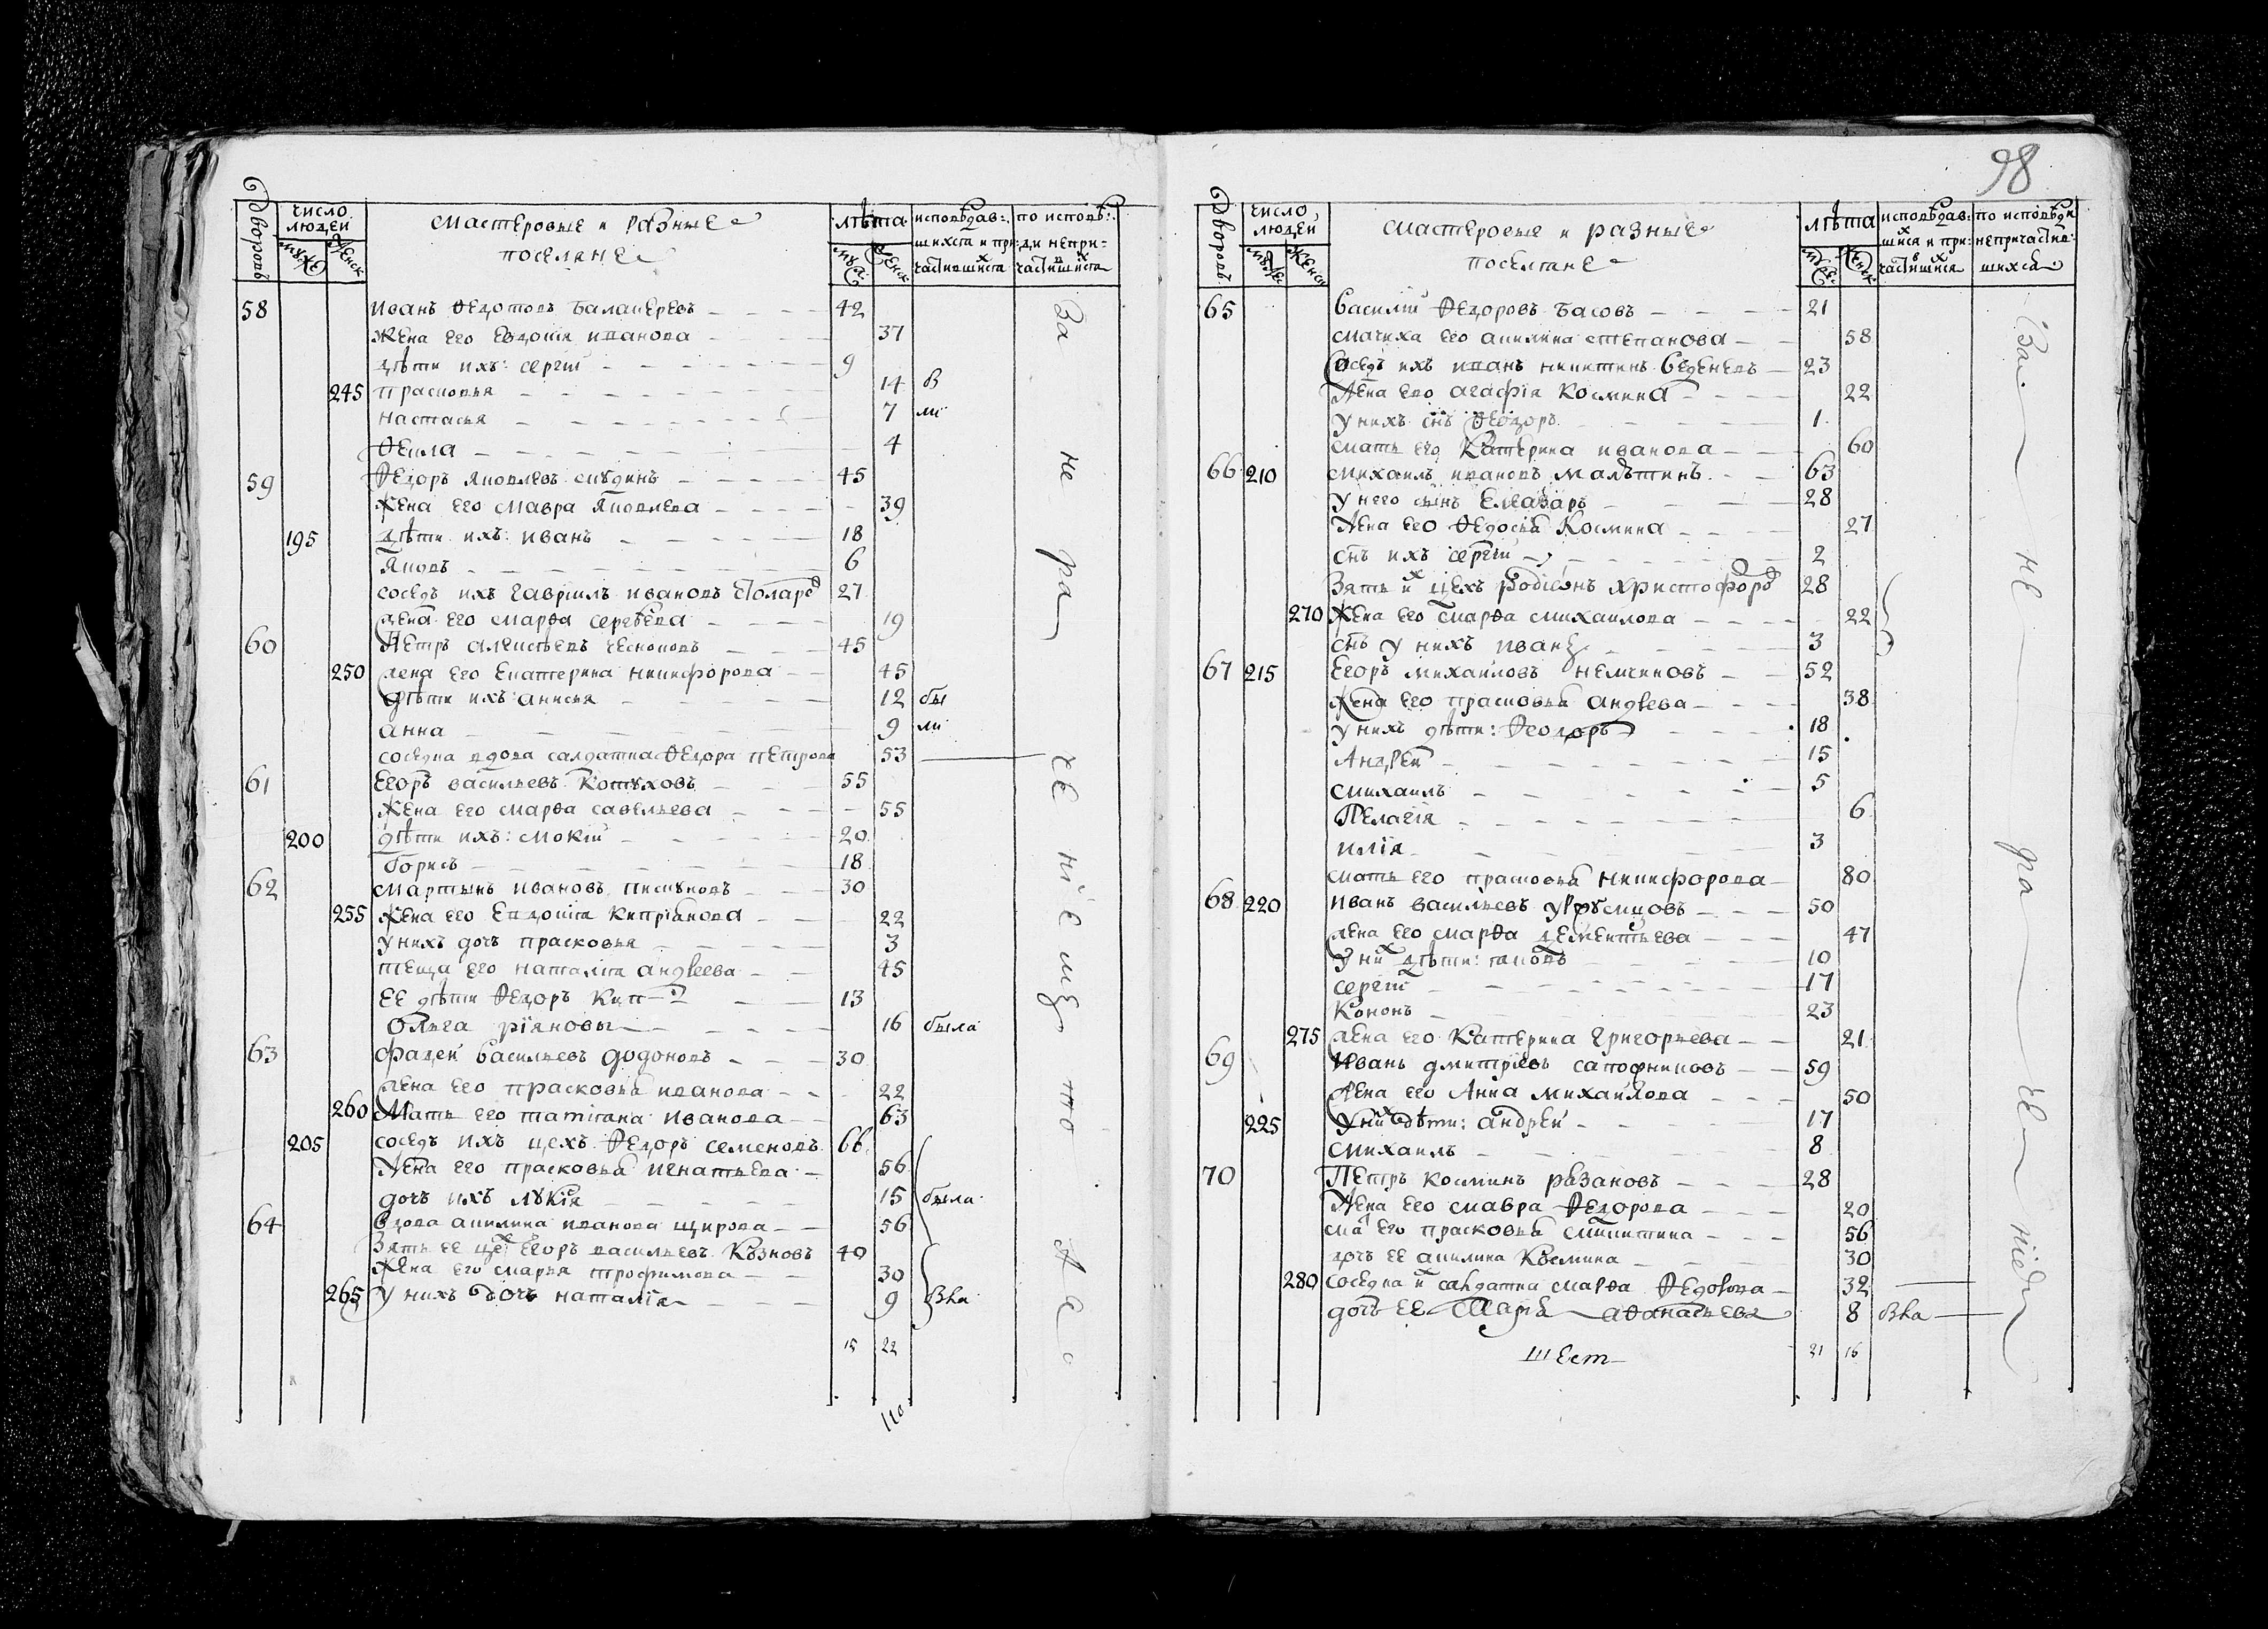 дворовъ
число людей
муж
женск
мастеровые и разные
поселяне
лѣта
муж.
женск
исповѣдав:
шихся и при:
частившихся
по исповѣ:
ди непри-
частившихся
58 иванъ ѳедотовъ балан 42
жена его евдокия иванова 37
дѣти ихъ: сергiй 9
245 прасковья 14 в
настасья 7 ли
ѳекла 4
59 ѳедоръ яковлевъ 45
жена его мавра яковлева 39
195 дѣти ихъ: иванъ 18
яковъ 6
сосѣдъ ихъ гаврiилъ ивановъ столяръ 27
жена его марѳа сергѣева 19
60 петръ алексѣевъ чесноковъ 45
250 жена его екатерина никифорова 45
дѣти ихъ: анисья 12 бы
анна 9 ли
сосѣдка вдова салдатка ѳедора петрова 53
61 егоръ васильевъ котуховъ 55
жена его марѳа савельева 55
200 дѣти ихъ: мокiй 20
борисъ 18
62 мартынъ ивановъ пискуновъ 30
255 жена его евдокiя кипрiянова 22
у нихъ дочь прасковья 3
теща его наталiя андреева 45
ее дѣти ѳедоръ кип 13
ольга рiяновы 16 была
63 фадей васильевъ додоновъ 30
жена его прасковья иванова 22
260 мать его татiяна иванова 63
205 сосѣдъ ихъ цехъ ѳедоръ семеновъ 66
жена его прасковья игнатьева 56
дочь ихъ лукiя 15 была
64 вдова акилина иванова щирова 56
зять ее цех егоръ васильевъ 40
жена его марья трофимова 30
265 у нихъ дочь наталiя 9
15 22
110
за не ра че нiемъ то
98
дворовъ
число людей
муж
женск
мастеровые и разные
поселяне
лѣта
муж
женск
исповѣдав:
шихся и при:
частившихся
по исповѣди
непричастив:
шихся
65 василiй ѳедоровъ басовъ 21
мачиха его акилина степанова 58
сосѣдъ ихъ иванъ никитинъ 23
жена его агафiя космина 22
у нихъ снъ ѳеодоръ 1
мать его катерина иванова 60
66 210 михаилъ ивановъ малѣтинъ 63
у него сынъ елеазаръ 28
жена его ѳедосья космина 27
снъ ихъ сергiй 2
зять их цехъ родiонъ христофоровъ 28
270 жена его марѳа михаилова 22
снъ у нихъ иванъ 3
67 215 егоръ михаиловъ немчиновъ 52
жена его прасковья андреева 38
у нихъ дѣти: ѳеодоръ 18
андрей 15
михаилъ 5
пелагiя 6
илiя 3
мать его прасковья никифорова 80
68 220 иванъ васильевъ 50
жена его марѳа дементьева 47
у них дѣти: яковъ 10
сергiй 17
кононъ 23
275 жена его катерина григорьева 21
69 иванъ дмитрiевъ сапожниковъ 59
жена его анна михайлова 50
225 у них дѣти: андрей 17
михаилъ 8
70 петръ косминъ рязановъ 28
жена его мавра ѳедорова 20
мат его прасковья никитина 56
дочь ее акилина космина 30
280 сосѣдка их салдатка марѳа ѳедорова 32
дочь ее марiя аѳанасьева 8
шест
21 16
за не ра че нiем